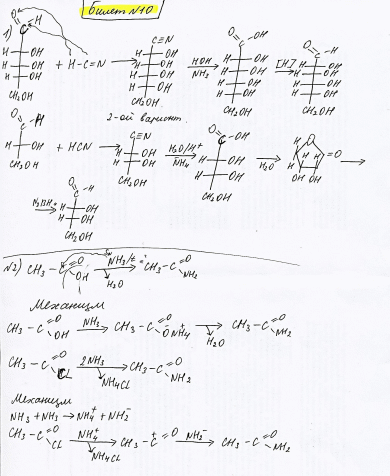 билет N10
1)
O C H
H OH
H OH
H OH
CH₂OH
+ H-C≡N →
C≡N
H OH
H OH
H OH
H OH
CH₂OH
HOH
NH₃
O C OH
H OH
H OH
H OH
H OH
CH₂OH
[H]
O C H
H OH
H OH
H OH
H OH
CH₂OH
2-ой вариант.
O C H
H OH
CH₂OH
+ HCN →
C≡N
H OH
H OH
CH₂OH
H₂O/H⁺
NH₄
O C OH
H OH
H OH
CH₂OH
H₂O
O
H H
OH OH
=O →
O C H
H OH
H OH
CH₂OH
N2) CH₃ - C O OH NH₃/t° H₂O CH₃-C O NH₂
Механизм
CH₃ - C O OH NH₃ → CH₃ - C O O⁻NH₄⁺ → H₂O CH₃ - C O NH₂
CH₃ - C O Cl 2NH₃ → NH₄Cl CH₃ - C O NH₂
Механизм
NH₃ + NH₃ → NH₄⁺ + NH₂⁻
CH₃ - C O Cl NH₄⁺ → NH₄Cl CH₃ - C⁺ = O NH₂⁻ → CH₃ - C O NH₂